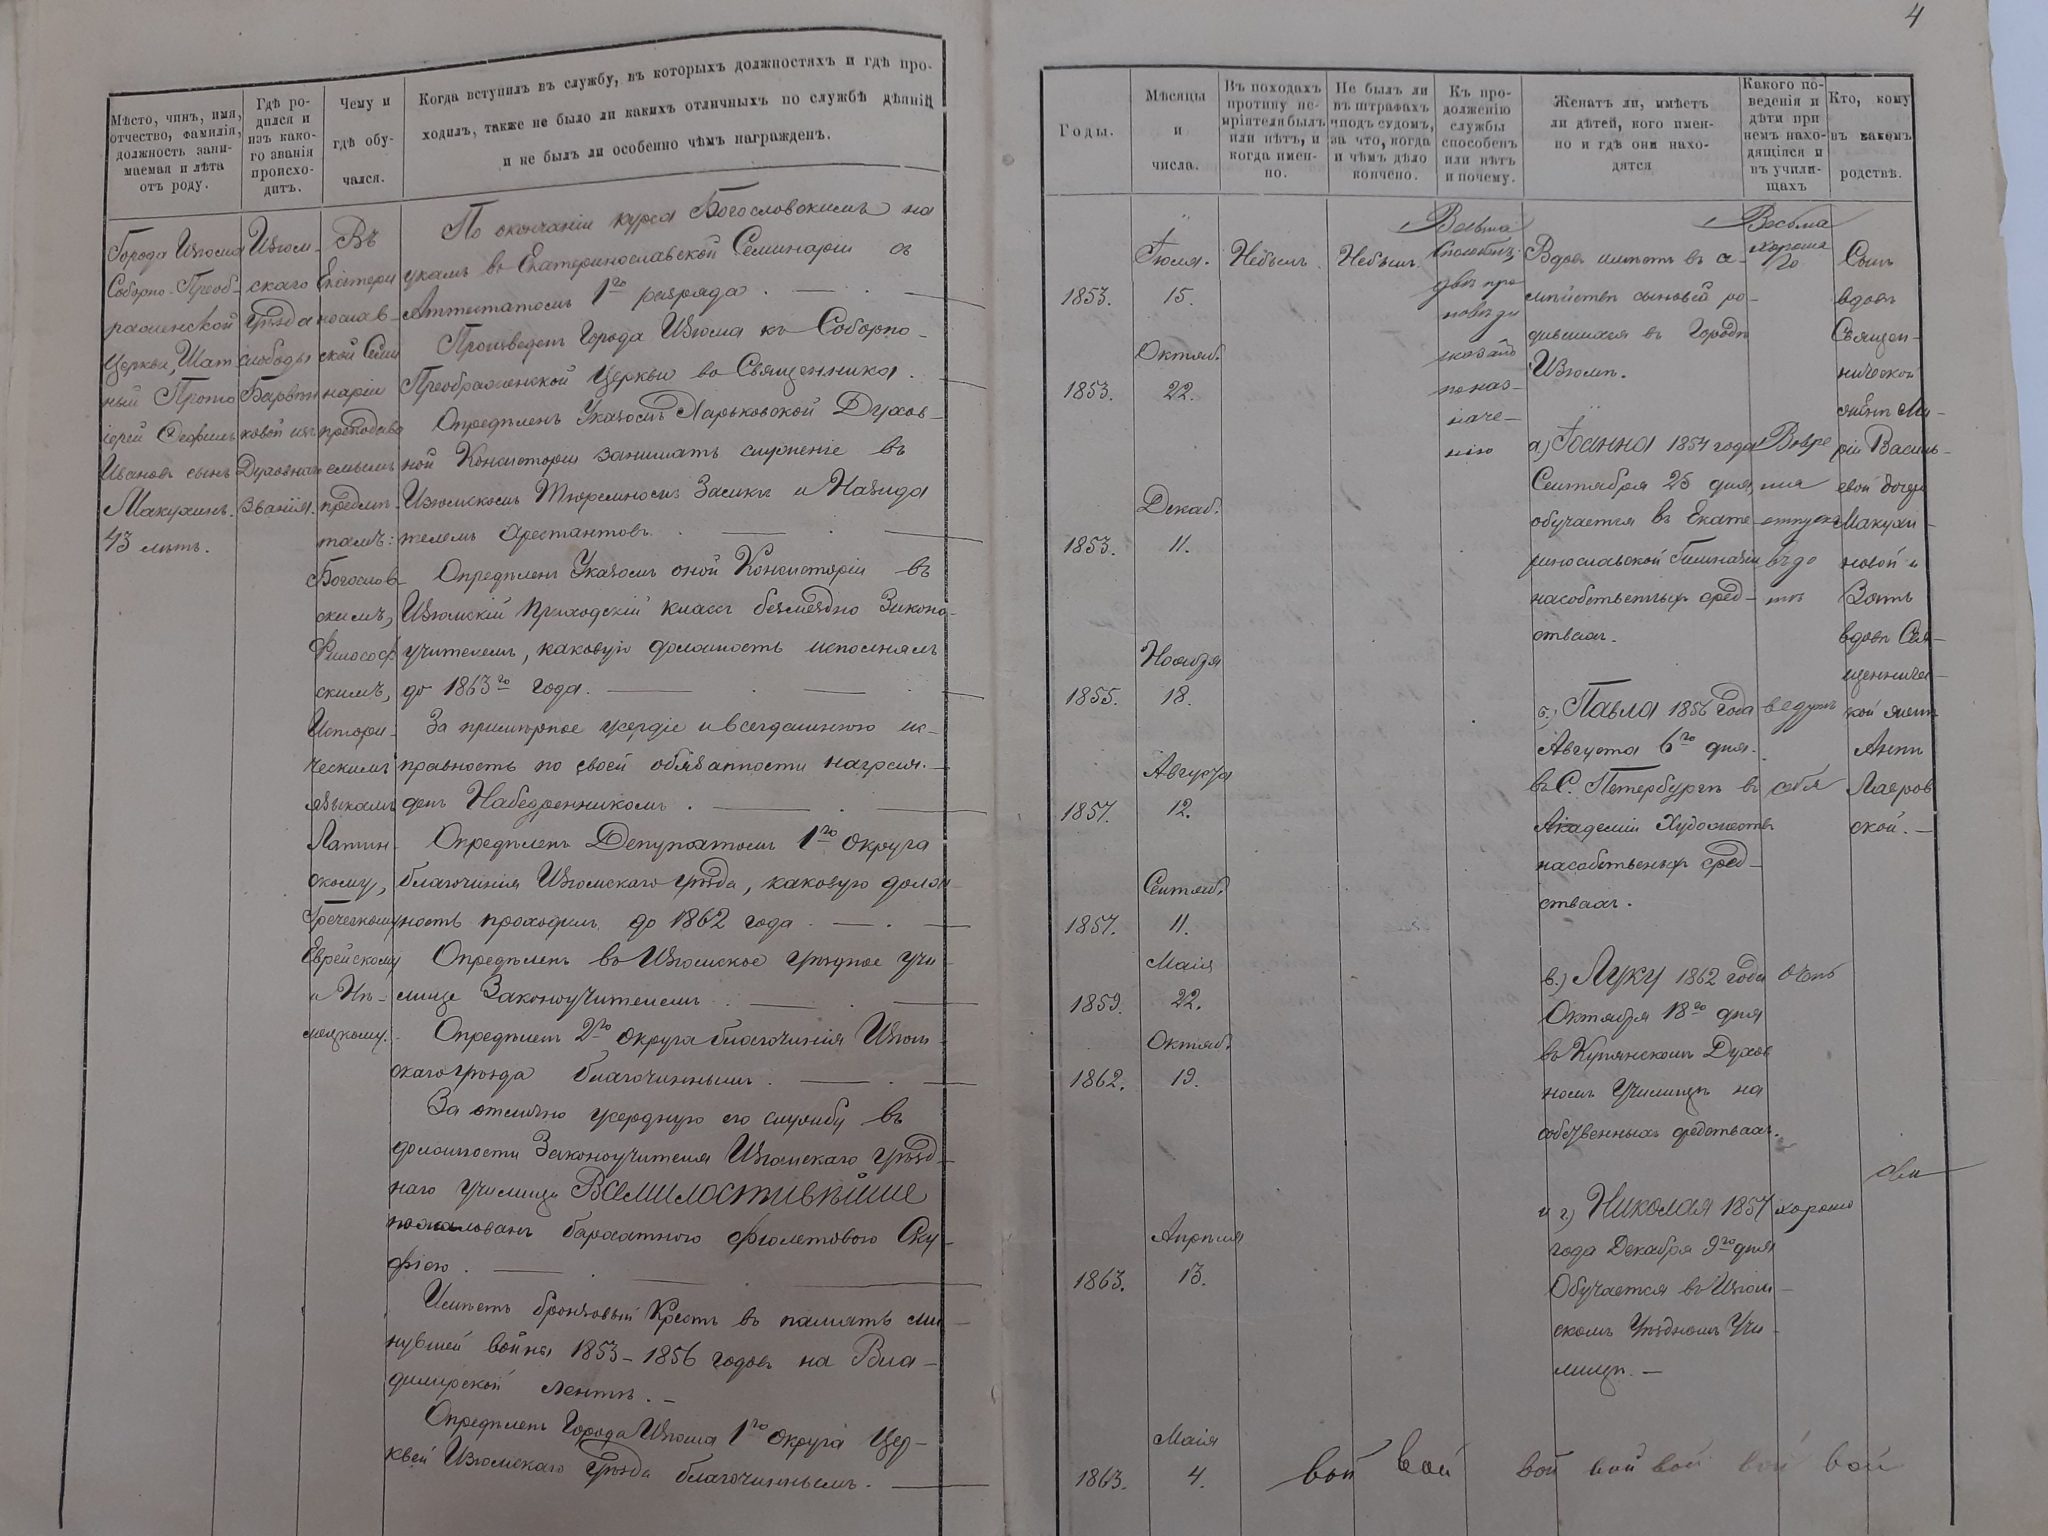 4
Мѣсто, чинъ, имя,
отчество, фамилія,
должность зани-
маемая и лѣта
отъ роду.
Гдѣ ро-
дился и
изъ како-
го званія
происхо-
дитъ.
Чему и
гдѣ обу-
чался.
Когда вступилъ въ службу, въ которыхъ должностяхъ и гдѣ про-
ходилъ, также не было ли какихъ отличныхъ по службѣ дѣяній
и не былъ ли особенно чѣмъ награжденъ.
Города Изюма
Соборно-Преоб-
раженской
Церкви, Штат
ный Прото
іерей Ѳеофилъ
Ивановъ сынъ
Макухинъ.
43 лѣтъ.
Изюм-
скаго
Уѣзда
слободы
Барвѣн
ковой изъ
Духовнаго
Званія.
Въ
Екатери
нослав-
ской Семи
наріи
преподава
емымъ
предме-
тамъ:
Богослов
скимъ,
Философ
скимъ,
Истори-
ческимъ
языкамъ
Латин-
скому,
Греческому
Еврейскому
и Нѣ-
мецкому.
По окончаніи курса Богословскимъ на
укамъ въ Екатеринославской Семинаріи съ
Аттестатомъ 1го разряда.
Произведенъ Города Изюма къ Соборно-
Преображенской Церкви во Священника.
Опредѣленъ Указомъ Харьковской Духов-
ной Консисторіи занимать служеніе въ
Изюмскомъ Тюремномъ Замкѣ и Назида
телемъ Арестантовъ.
Опредѣленъ Указомъ оной Консисторіи въ
Изюмскій Приходскій классъ безмездно Законо-
учителемъ, каковую должность исполнялъ
до 1863го года.
За примѣрное усердіе и всегдашнюю ис-
правность по своей обязанности награж-
денъ Набедренникомъ.
Опредѣленъ Депутатомъ 1го Округа
благочинія Изюмскаго уѣзда, каковую долж
ность проходилъ до 1862 года.
Опредѣленъ во Изюмское уѣздное Учи-
лище Законоучителемъ.
Опредѣленъ 2го Округа благочинія Изюм-
скаго уѣзда благочиннымъ.
За отлично усердную его службу въ
должности Законоучителя Изюмскаго уѣзд-
наго училища Всемилостивѣйше
пожалованъ бархатною фіолетовою Ску-
фьею.
Имѣетъ бронзовый Крестъ въ память ми-
нувшей войны 1853-1856 годовъ на Вла-
димирской лентѣ.
Опредѣленъ Города Изюма 1го Округа Цер-
квей Изюмскаго Уѣзда благочиннымъ.
Годы.
Мѣсяцы
и
числа.
Въ походахъ
противу не-
пріятеля былъ
или нѣтъ, и
когда имен-
но.
Не былъ ли
въ штрафахъ
подъ судомъ,
за что, когда
и чѣмъ дѣло
кончено.
Къ про-
долженію
службы
способенъ
или нѣтъ
и почему.
Женатъ ли, имѣетъ
ли дѣтей, кого имен-
но и гдѣ они нахо-
дятся
Какого по-
веденія и
дѣти при
немъ нахо-
дящіяся и
въ учили-
щахъ
Кто, кому
въ какомъ
родствѣ.
1853.
Іюля.
15.
1853.
Октяб.
22.
1853.
Декаб.
11.
1855.
Ноября
18.
1857.
Августа
12.
1857.
Сентяб.
11.
1859.
Маія
22.
1862.
Октяб.
19.
1863.
Апрѣля
13.
1863.
Маія
4.
Небылъ.
Небылъ.
Весьма
Вдовъ имѣетъ въ се-
мействѣ сыновей ро-
дившихся въ Городѣ
Изюмѣ.
а.) Іоанна 1854 года
Сентября 25 дня,
обучается въ Екате-
ринославской Гимназіи
насобственныхъ сред-
ствахъ.
б.) Павла 1856 года
Августа 6го дня.
въ С. Петербургѣ въ
Академіи Художествъ
насобственныхъ сред-
ствахъ.
в.) Луку 1862 года
Октября 18го дня
въ Купянскомъ Духов
номъ Училищѣ на
собственныхъ средствахъ.
и г.) Николая 1857
года Декабря 9го дня
Обучается въ Изюм-
скомъ Уѣздномъ Учи-
лищѣ.
Весьма
хороша
го
Вовре
мя
отпуска
ведутъ
себя
очень
хорошо
Сынъ
вдовѣ
Священ-
нической
женѣ Ма-
ріи Василь-
евой
Макухи-
новой и
Зять
вдовѣ Свя-
щенниче-
ской женѣ
Аннѣ
Лавров
ской.
вой вой вой вой вой вой вой